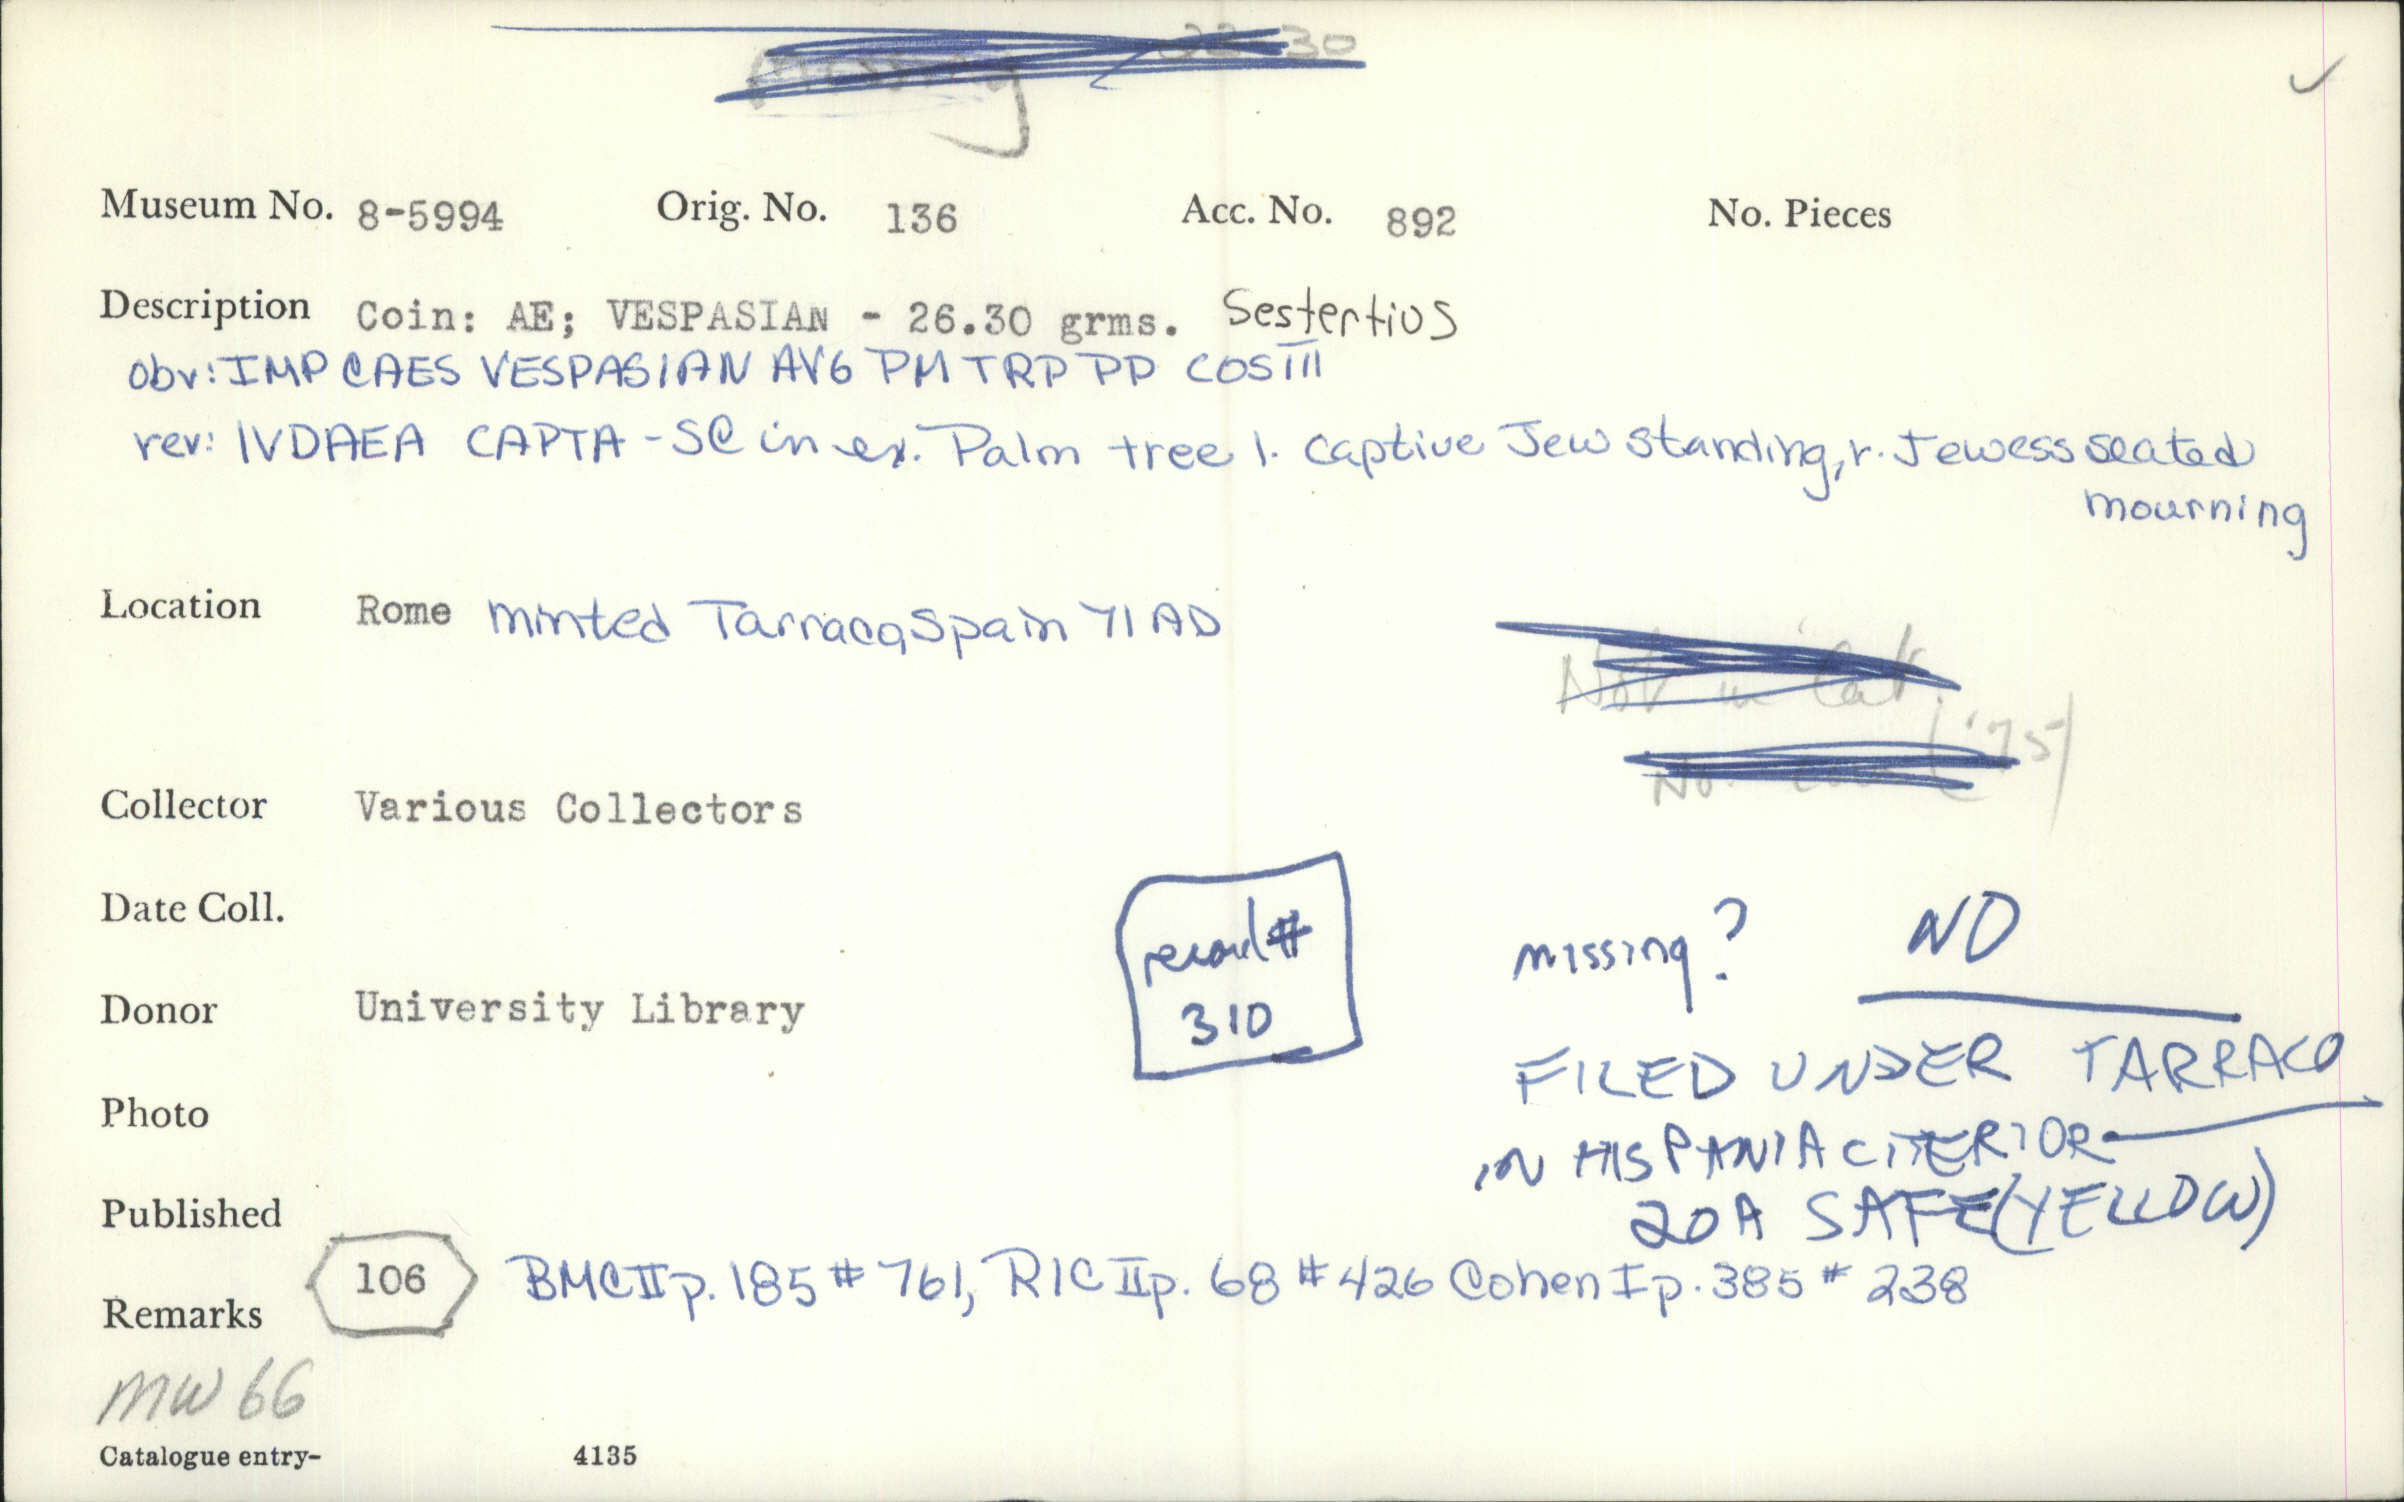 missing
30
Museum No. 8-5994 Orig. No. 136 Acc. No. 892 No. Pieces
Description Coin: AE; VESPASIAN - 26.30 grms. Sestertius
obv: IMP CAES VESPASIAN AVG PM TRP PP COS III
rev: IVDAEA CAPTA - SC in ex. Palm tree l. captive Jew standing, r. Jewess seated
mourning
Location Rome minted Tarraco, Spain 71 AD
Not in Cat.
('75)
Collector Various Collectors
Date Coll.
record #
310
missing? NO
Donor University Library
FILED UNDER TARRACO
IN HISPANIA CITERIOR
Photo
20A SAFE (YELLOW)
Published
106 BMC II p. 185 # 761, RIC II p. 68 # 426 Cohen I p. 385 # 238
Remarks
MW 66
Catalogue entry- 4135